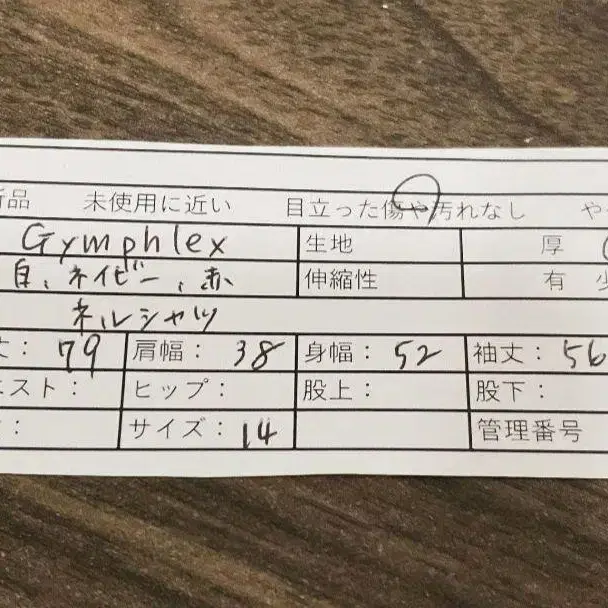 新品 未使用に近い 目立った傷や汚れなし や
Gymphlex 生地 厚
白、ネイビー、赤 伸縮性 有 少
ネルシャツ
丈: 79 肩幅: 38 身幅: 52 袖丈: 56
エスト: ヒップ: 股上: 股下:
: サイズ: 14 管理番号